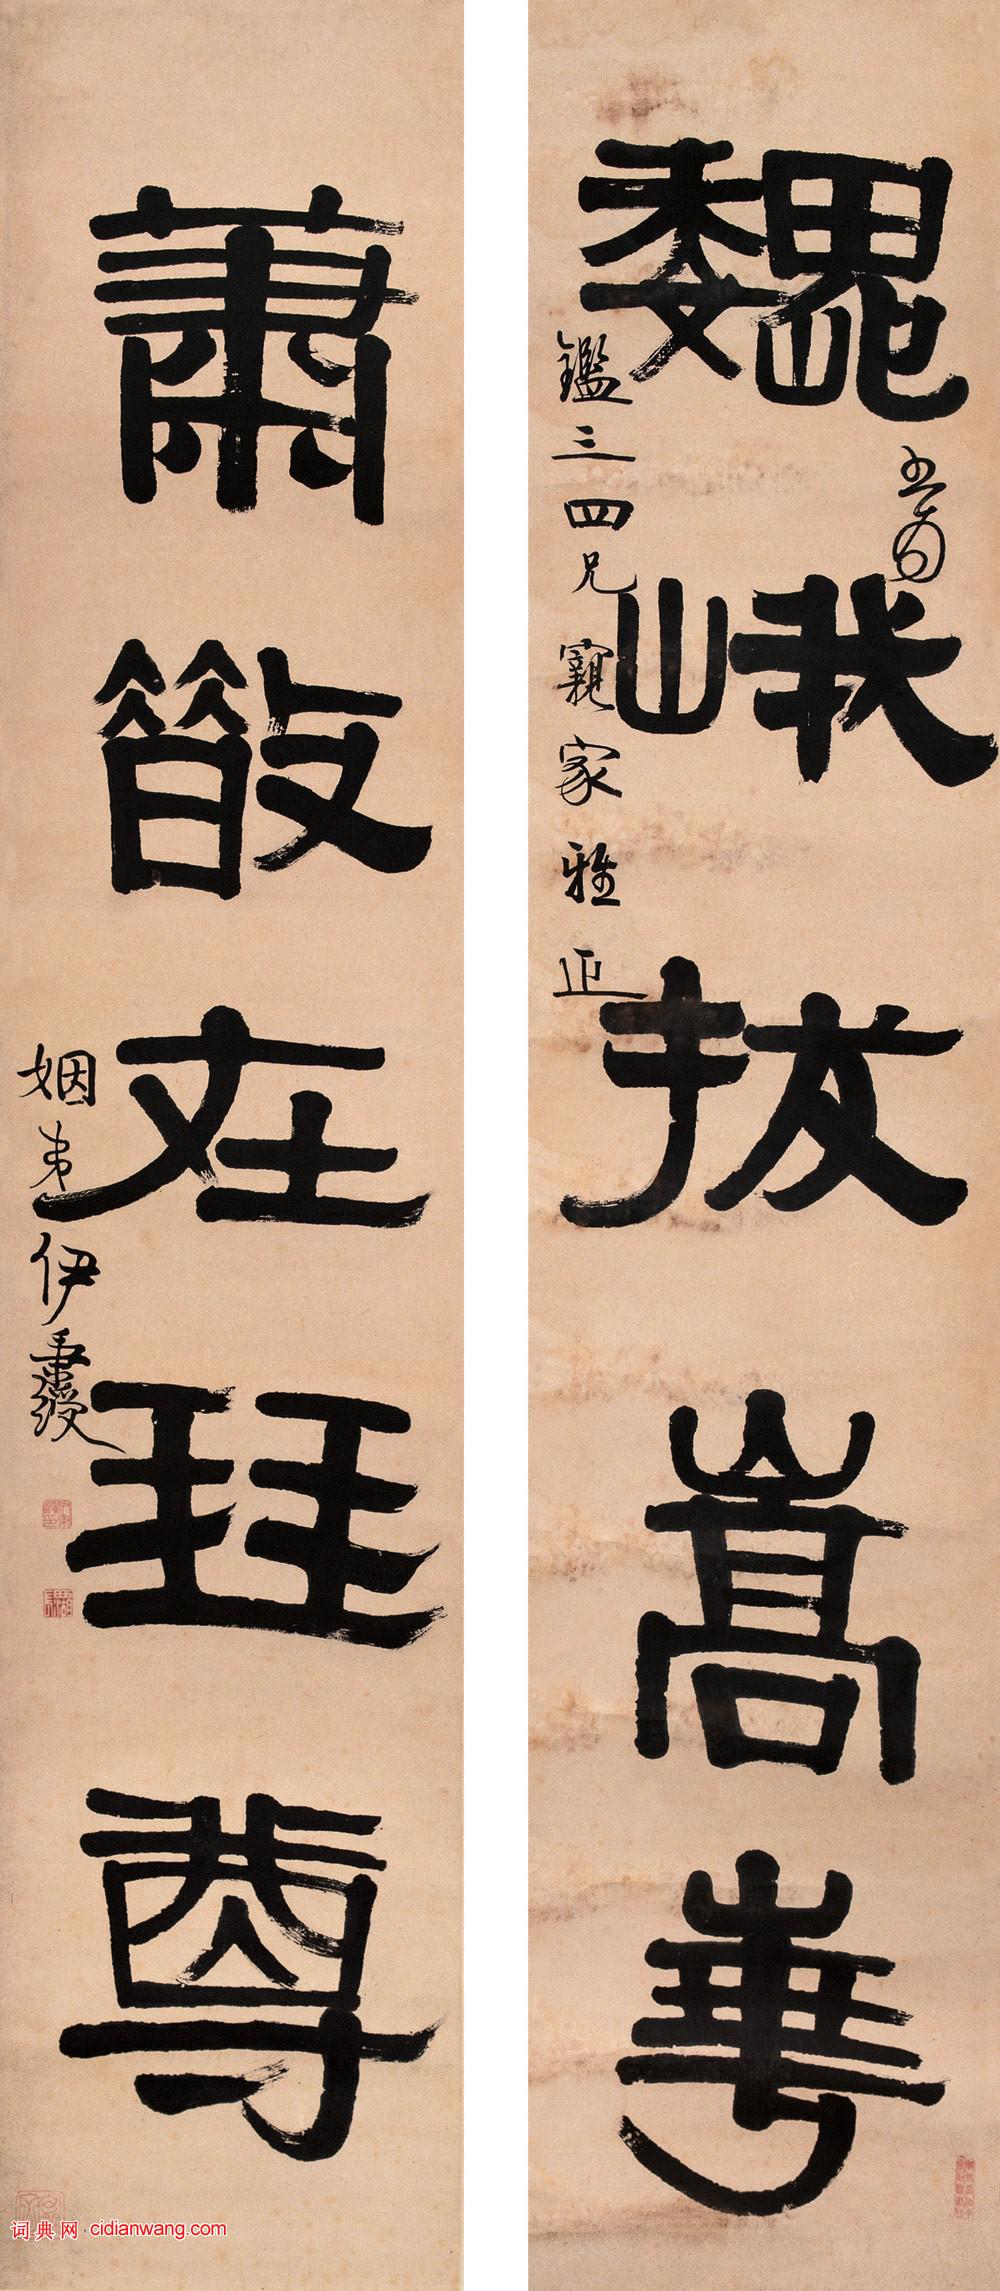 巍峨拔嵩華
書為
鑑三四兄親家雅正
蕭散在琴尊
姻弟伊秉綬
词典网·cidianwang.com